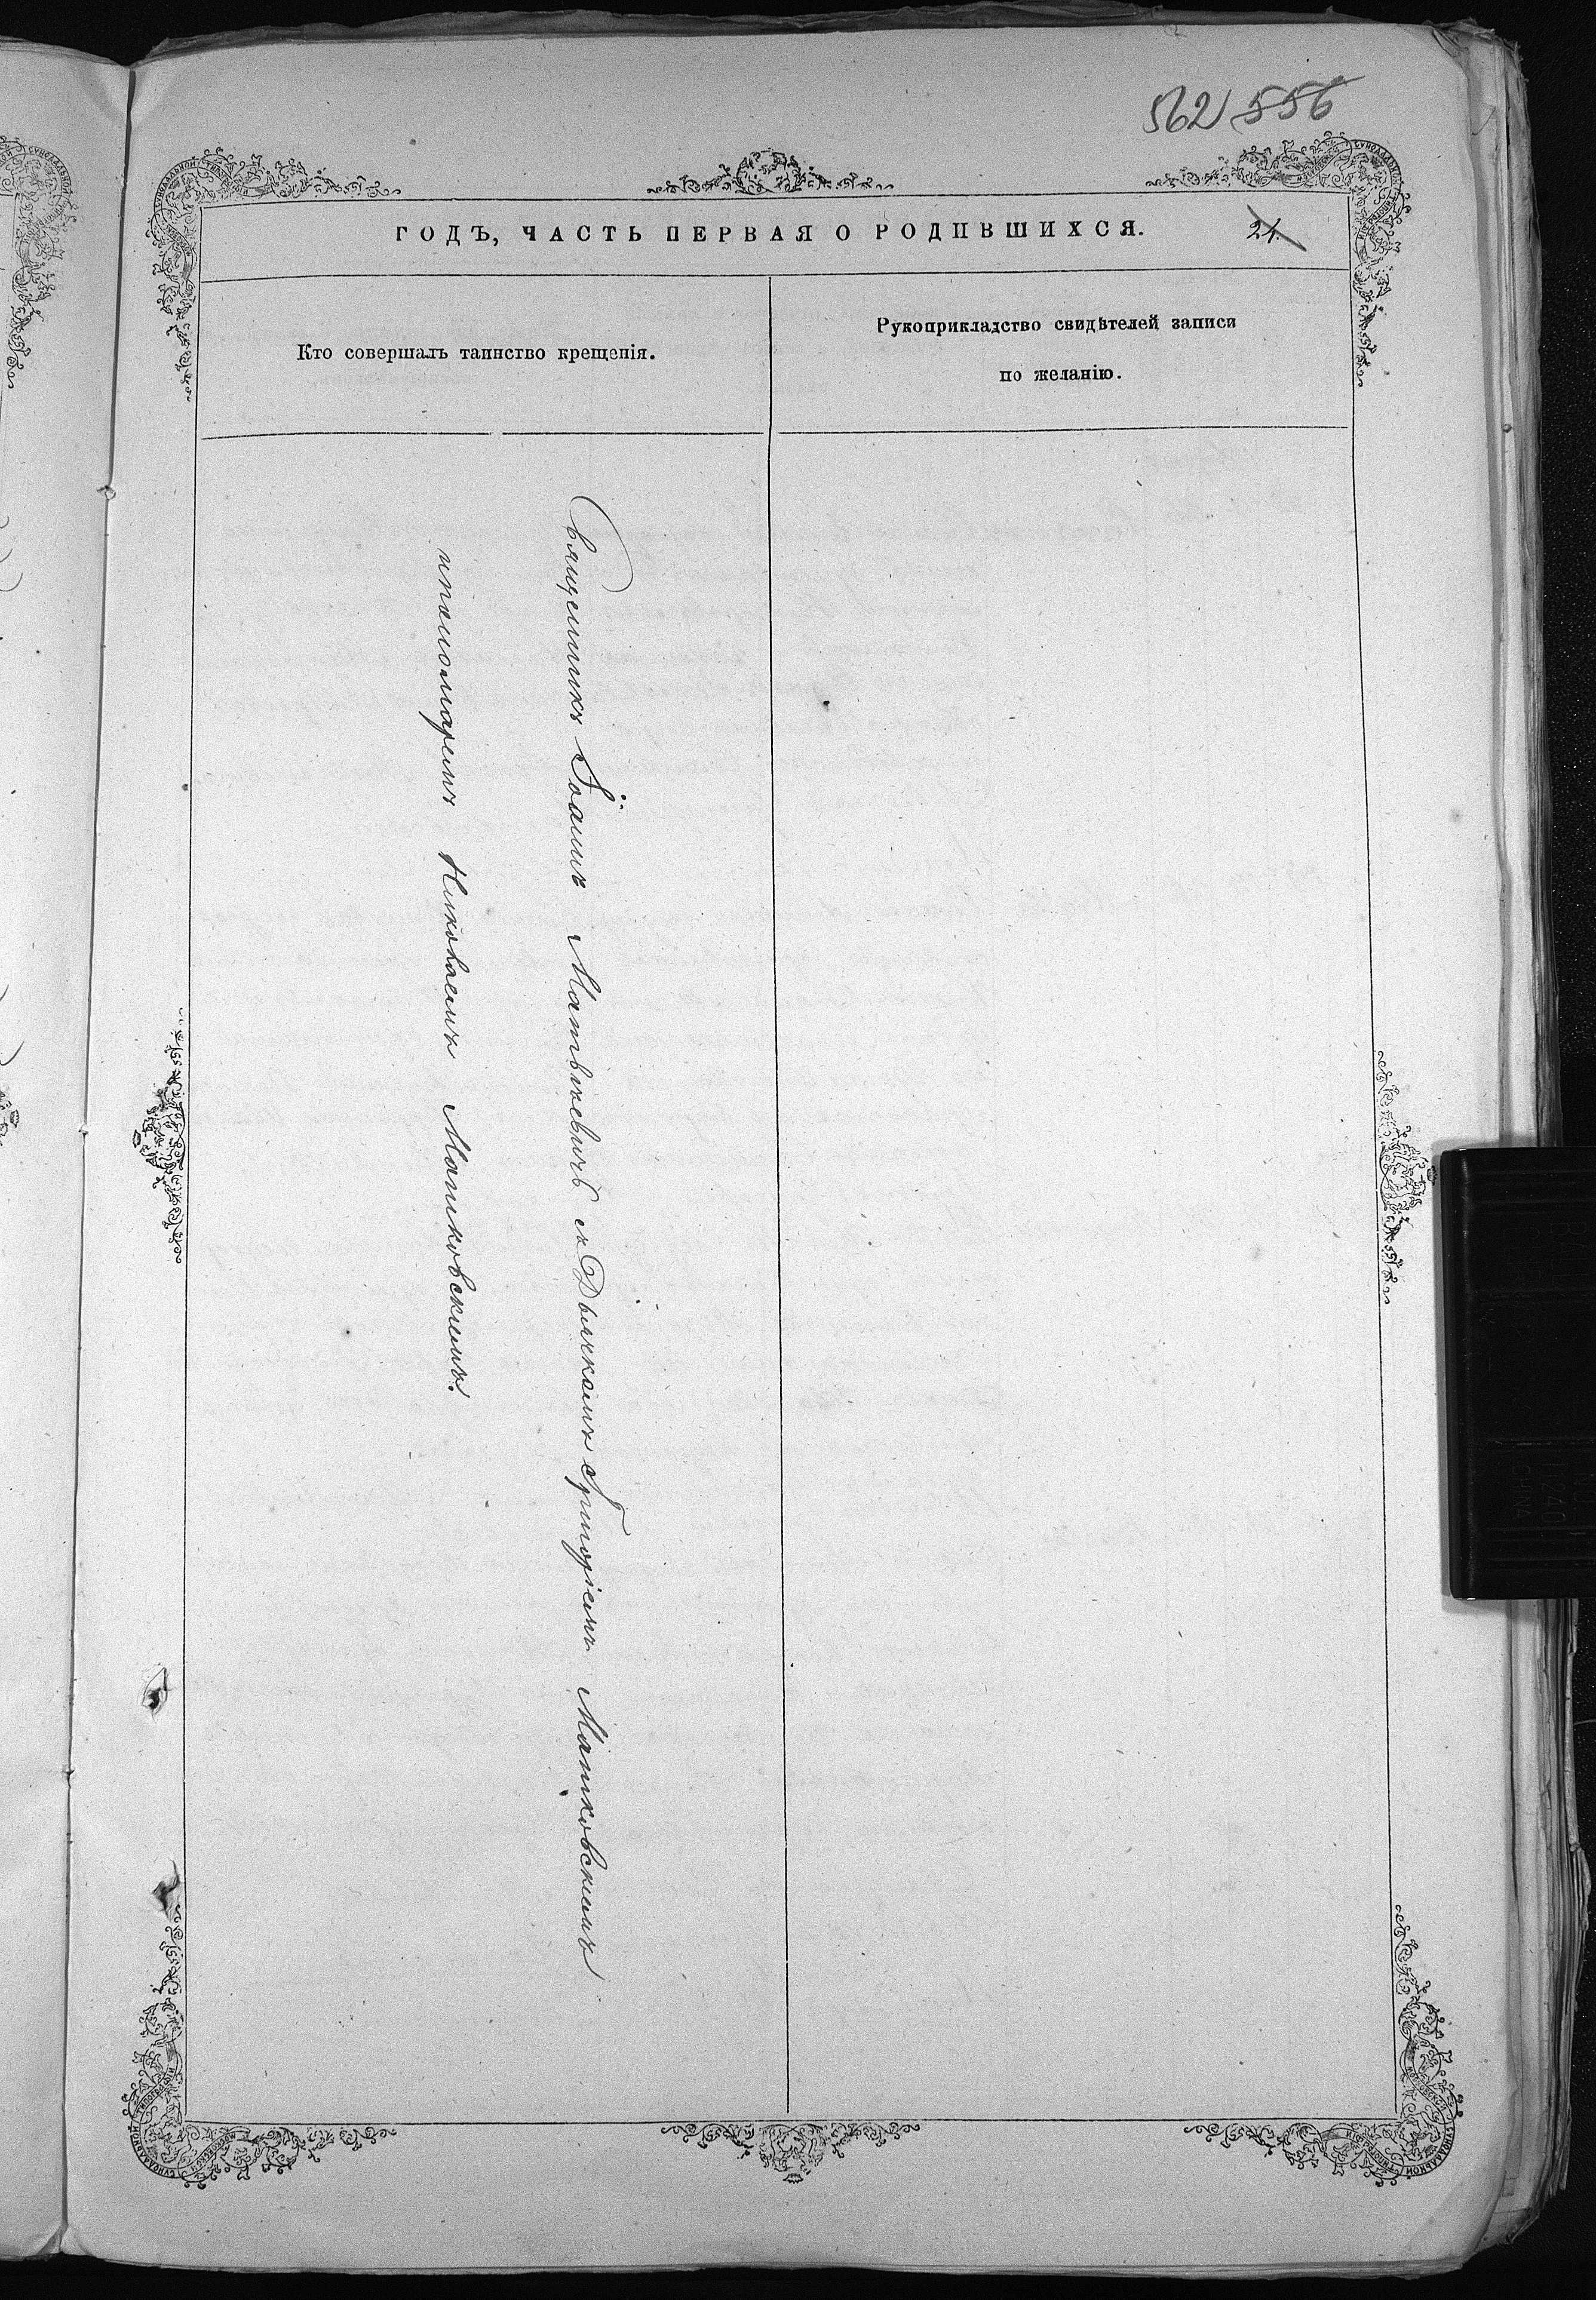 562 556
ГОДЪ, ЧАСТЬ ПЕРВАЯ О РОДИВШИХСЯ.
21.
Кто совершалъ таинство крещенія.
Рукоприкладство свидѣтелей записи
по желанію.
Священникъ Іоаннъ Матвѣевичъ съ Дьячкомъ Григоріемъ Маньковскимъ
и пономаремъ Николаемъ Маньковскимъ.